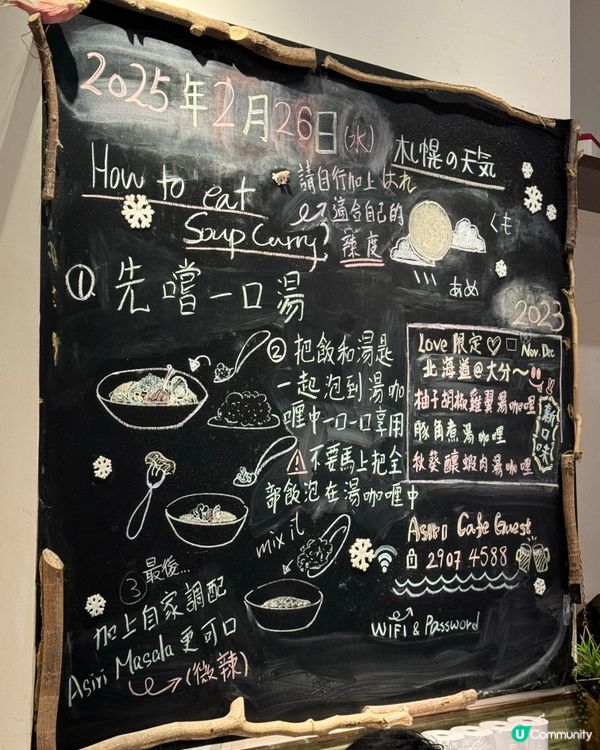 2025年2月26日(水)
How to eat
Soup Curry?
請自行加上
適合自己的
辣度
札幌の天気
はれ
くも
あめ
① 先嚐一口湯
② 把飯和湯匙
一起泡到湯咖
喱中一口一口享用
不要馬上把全
部飯泡在湯咖喱中
mix it
③ 最後...
加上自家調配
Asiri Masala更可口
(微辣)
2023
Love 限定♡ Nov. Dec
北海道@大分～
柚子胡椒雞翼湯咖喱
豚角煮湯咖喱
秋葵釀蝦肉湯咖喱
新口味
Asiri Cafe Guest
2907 4588
WiFi & Password
U Community